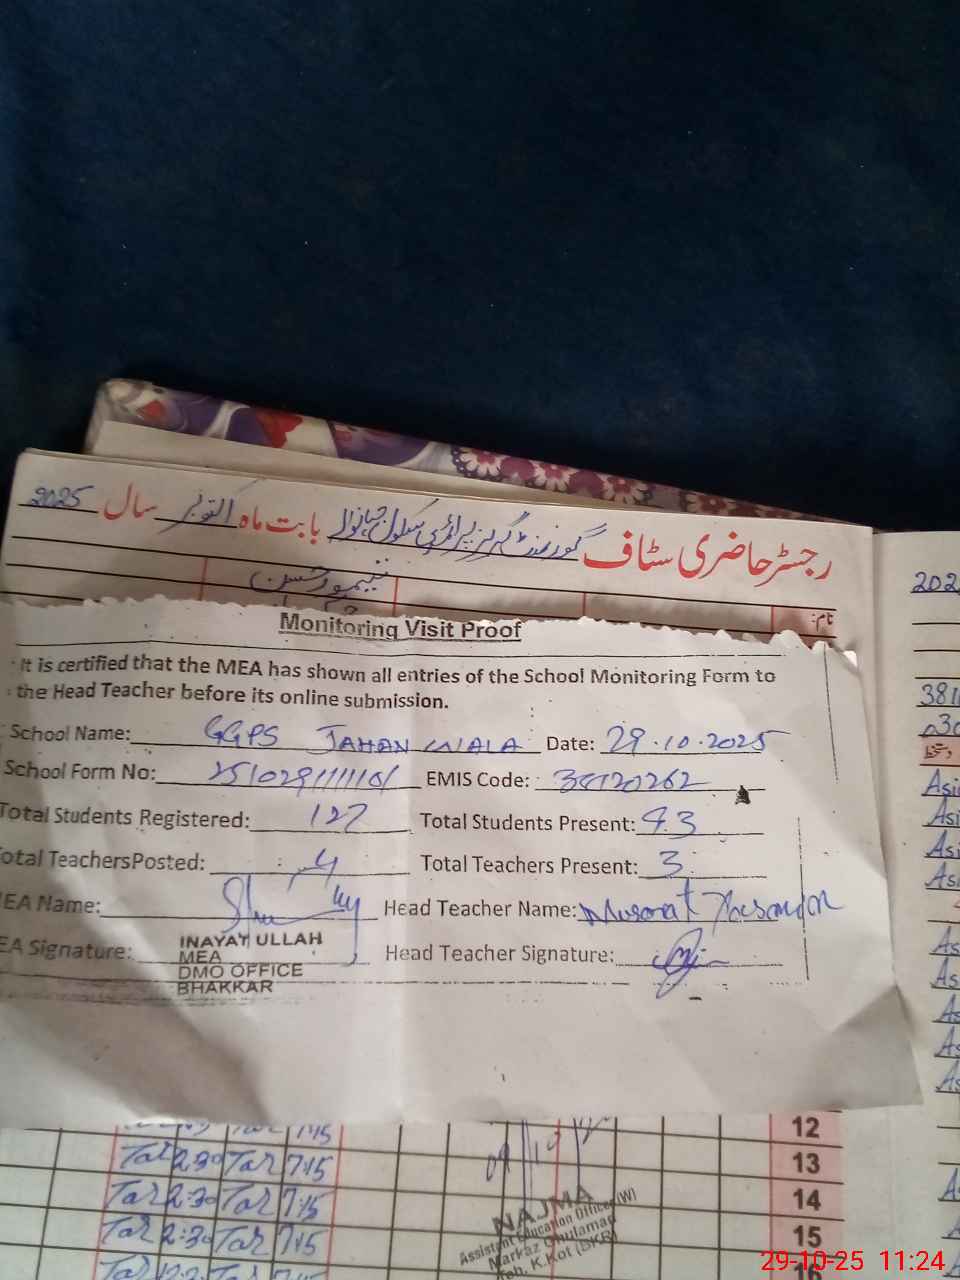 رجسٹر حاضری سٹاف گورنمنٹ گرلز پرائمری سکول جہانوالہ بابت ماہ اکتوبر سال 2025
نام:
Monitoring Visit Proof
It is certified that the MEA has shown all entries of the School Monitoring Form to
the Head Teacher before its online submission.
School Name: GGPS JAHAN WALA Date: 29.10.2025
School Form No: EMIS Code: 38120262
Total Students Registered: 127 Total Students Present: 43
Total TeachersPosted: 4 Total Teachers Present: 3
MEA Name: Head Teacher Name: Musarat
MEA Signature: Head Teacher Signature:
INAYAT ULLAH
MEA
DMO OFFICE
BHAKKAR
12
2:30 7:15 13
2:30 7:15 14
2:30 7:15 15
NAJMA
Assistant Education Officer (W)
Markaz Ghulaman
Teh. K.Kot (BKR)
29-10-25 11:24